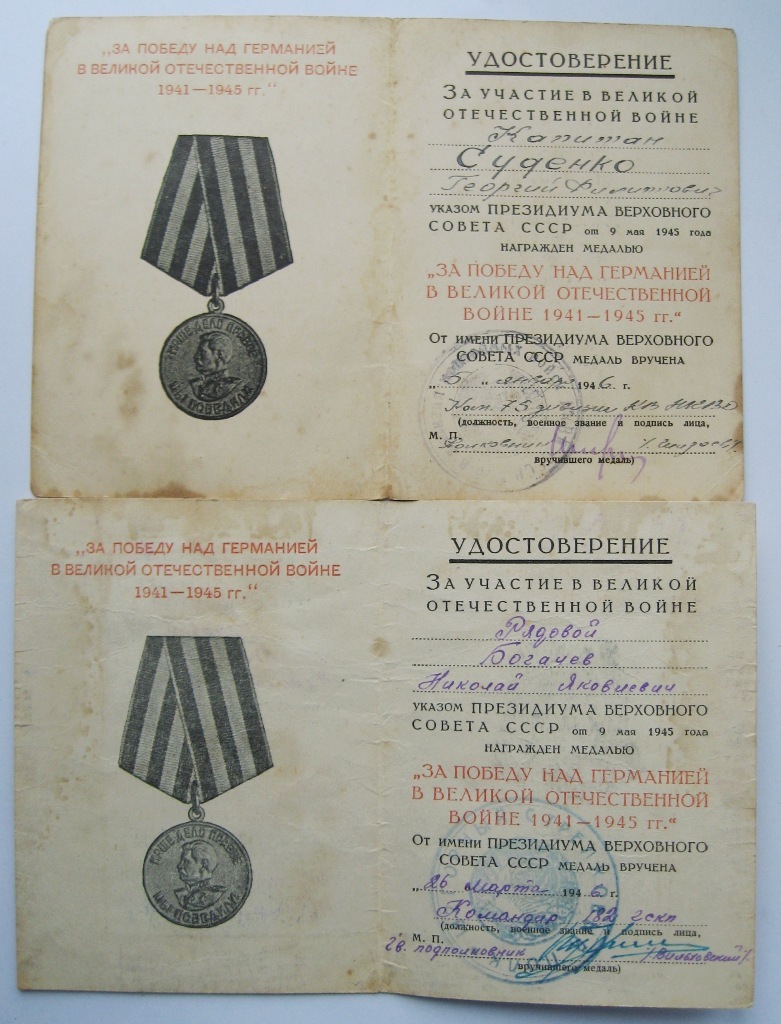 „ЗА ПОБЕДУ НАД ГЕРМАНИЕЙ
В ВЕЛИКОЙ ОТЕЧЕСТВЕННОЙ ВОЙНЕ
1941—1945 гг.“
НАШЕ ДЕЛО ПРАВОЕ
МЫ ПОБЕДИЛИ
УДОСТОВЕРЕНИЕ
ЗА УЧАСТИЕ В ВЕЛИКОЙ
ОТЕЧЕСТВЕННОЙ ВОЙНЕ
Капитан
Суденко
Георгий Филиппович
УКАЗОМ ПРЕЗИДИУМА ВЕРХОВНОГО
СОВЕТА СССР от 9 мая 1945 года
НАГРАЖДЕН МЕДАЛЬЮ
„ЗА ПОБЕДУ НАД ГЕРМАНИЕЙ
В ВЕЛИКОЙ ОТЕЧЕСТВЕННОЙ
ВОЙНЕ 1941—1945 гг.“
ОТ ИМЕНИ ПРЕЗИДИУМА ВЕРХОВНОГО
СОВЕТА СССР МЕДАЛЬ ВРУЧЕНА
„5„ января 1946 г.
Ком. 75 дивизии КВ НКВД
(должность, военное звание и подпись лица,
М. П.
Полковник
вручившего медаль)
„ЗА ПОБЕДУ НАД ГЕРМАНИЕЙ
В ВЕЛИКОЙ ОТЕЧЕСТВЕННОЙ ВОЙНЕ
1941—1945 гг.“
НАШЕ ДЕЛО ПРАВОЕ
МЫ ПОБЕДИЛИ
УДОСТОВЕРЕНИЕ
ЗА УЧАСТИЕ В ВЕЛИКОЙ
ОТЕЧЕСТВЕННОЙ ВОЙНЕ
Рядовой
Богачев
Николай Яковлевич
УКАЗОМ ПРЕЗИДИУМА ВЕРХОВНОГО
СОВЕТА СССР от 9 мая 1945 года
НАГРАЖДЕН МЕДАЛЬЮ
„ЗА ПОБЕДУ НАД ГЕРМАНИЕЙ
В ВЕЛИКОЙ ОТЕЧЕСТВЕННОЙ
ВОЙНЕ 1941—1945 гг.“
ОТ ИМЕНИ ПРЕЗИДИУМА ВЕРХОВНОГО
СОВЕТА СССР МЕДАЛЬ ВРУЧЕНА
„26 марта 1946 г.
Командир 182 гскп
(должность, военное звание и подпись лица,
М. П.
Гв. подполковник
вручившего медаль)